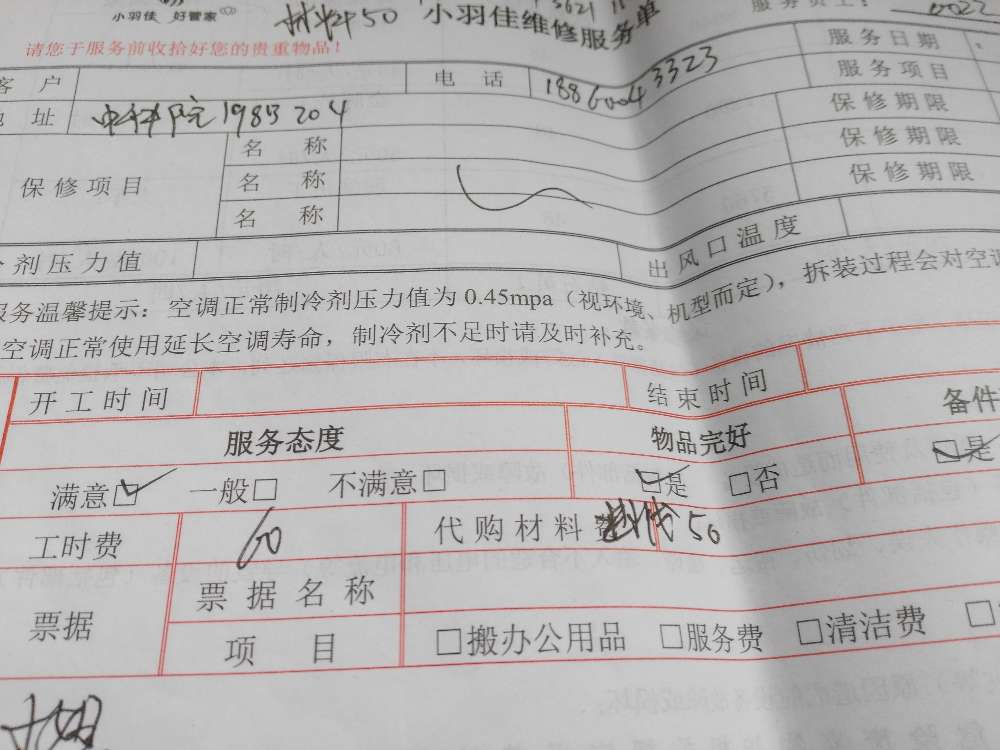 小羽佳 好管家
材料50
小羽佳维修服务单
请您于服务前收拾好您的贵重物品！
客户 电话 18860043323 服务日期
服务项目
地址 中科院1985 204 保修期限
保修项目 名称 保修期限
名称 保修期限
名称
剂压力值 出风口温度
服务温馨提示：空调正常制冷剂压力值为0.45mpa（视环境、机型而定），拆装过程会对空调
空调正常使用延长空调寿命，制冷剂不足时请及时补充。
开工时间 结束时间
服务态度 物品完好 备件
满意☑ 一般□ 不满意□ ☑是 □否 ☑是
工时费 60 代购材料费 材料50
票据 票据名称
项目 □搬办公用品 □服务费 □清洁费 □